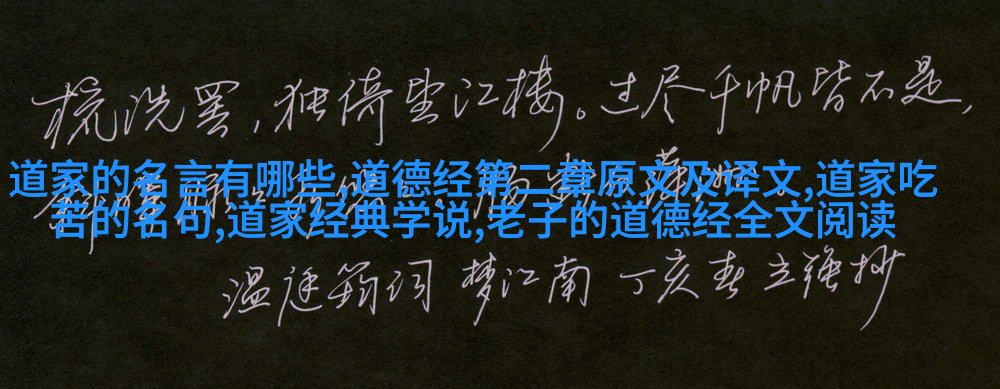 梳洗罢，独倚望江楼。过尽千帆皆不是，
道家的名言有哪些,道德经第二章原文及译文,道家吃
苦的名句,道家经典学说,老子的道德经全文阅读
温庭筠词 梦江南 丁亥春 立强抄